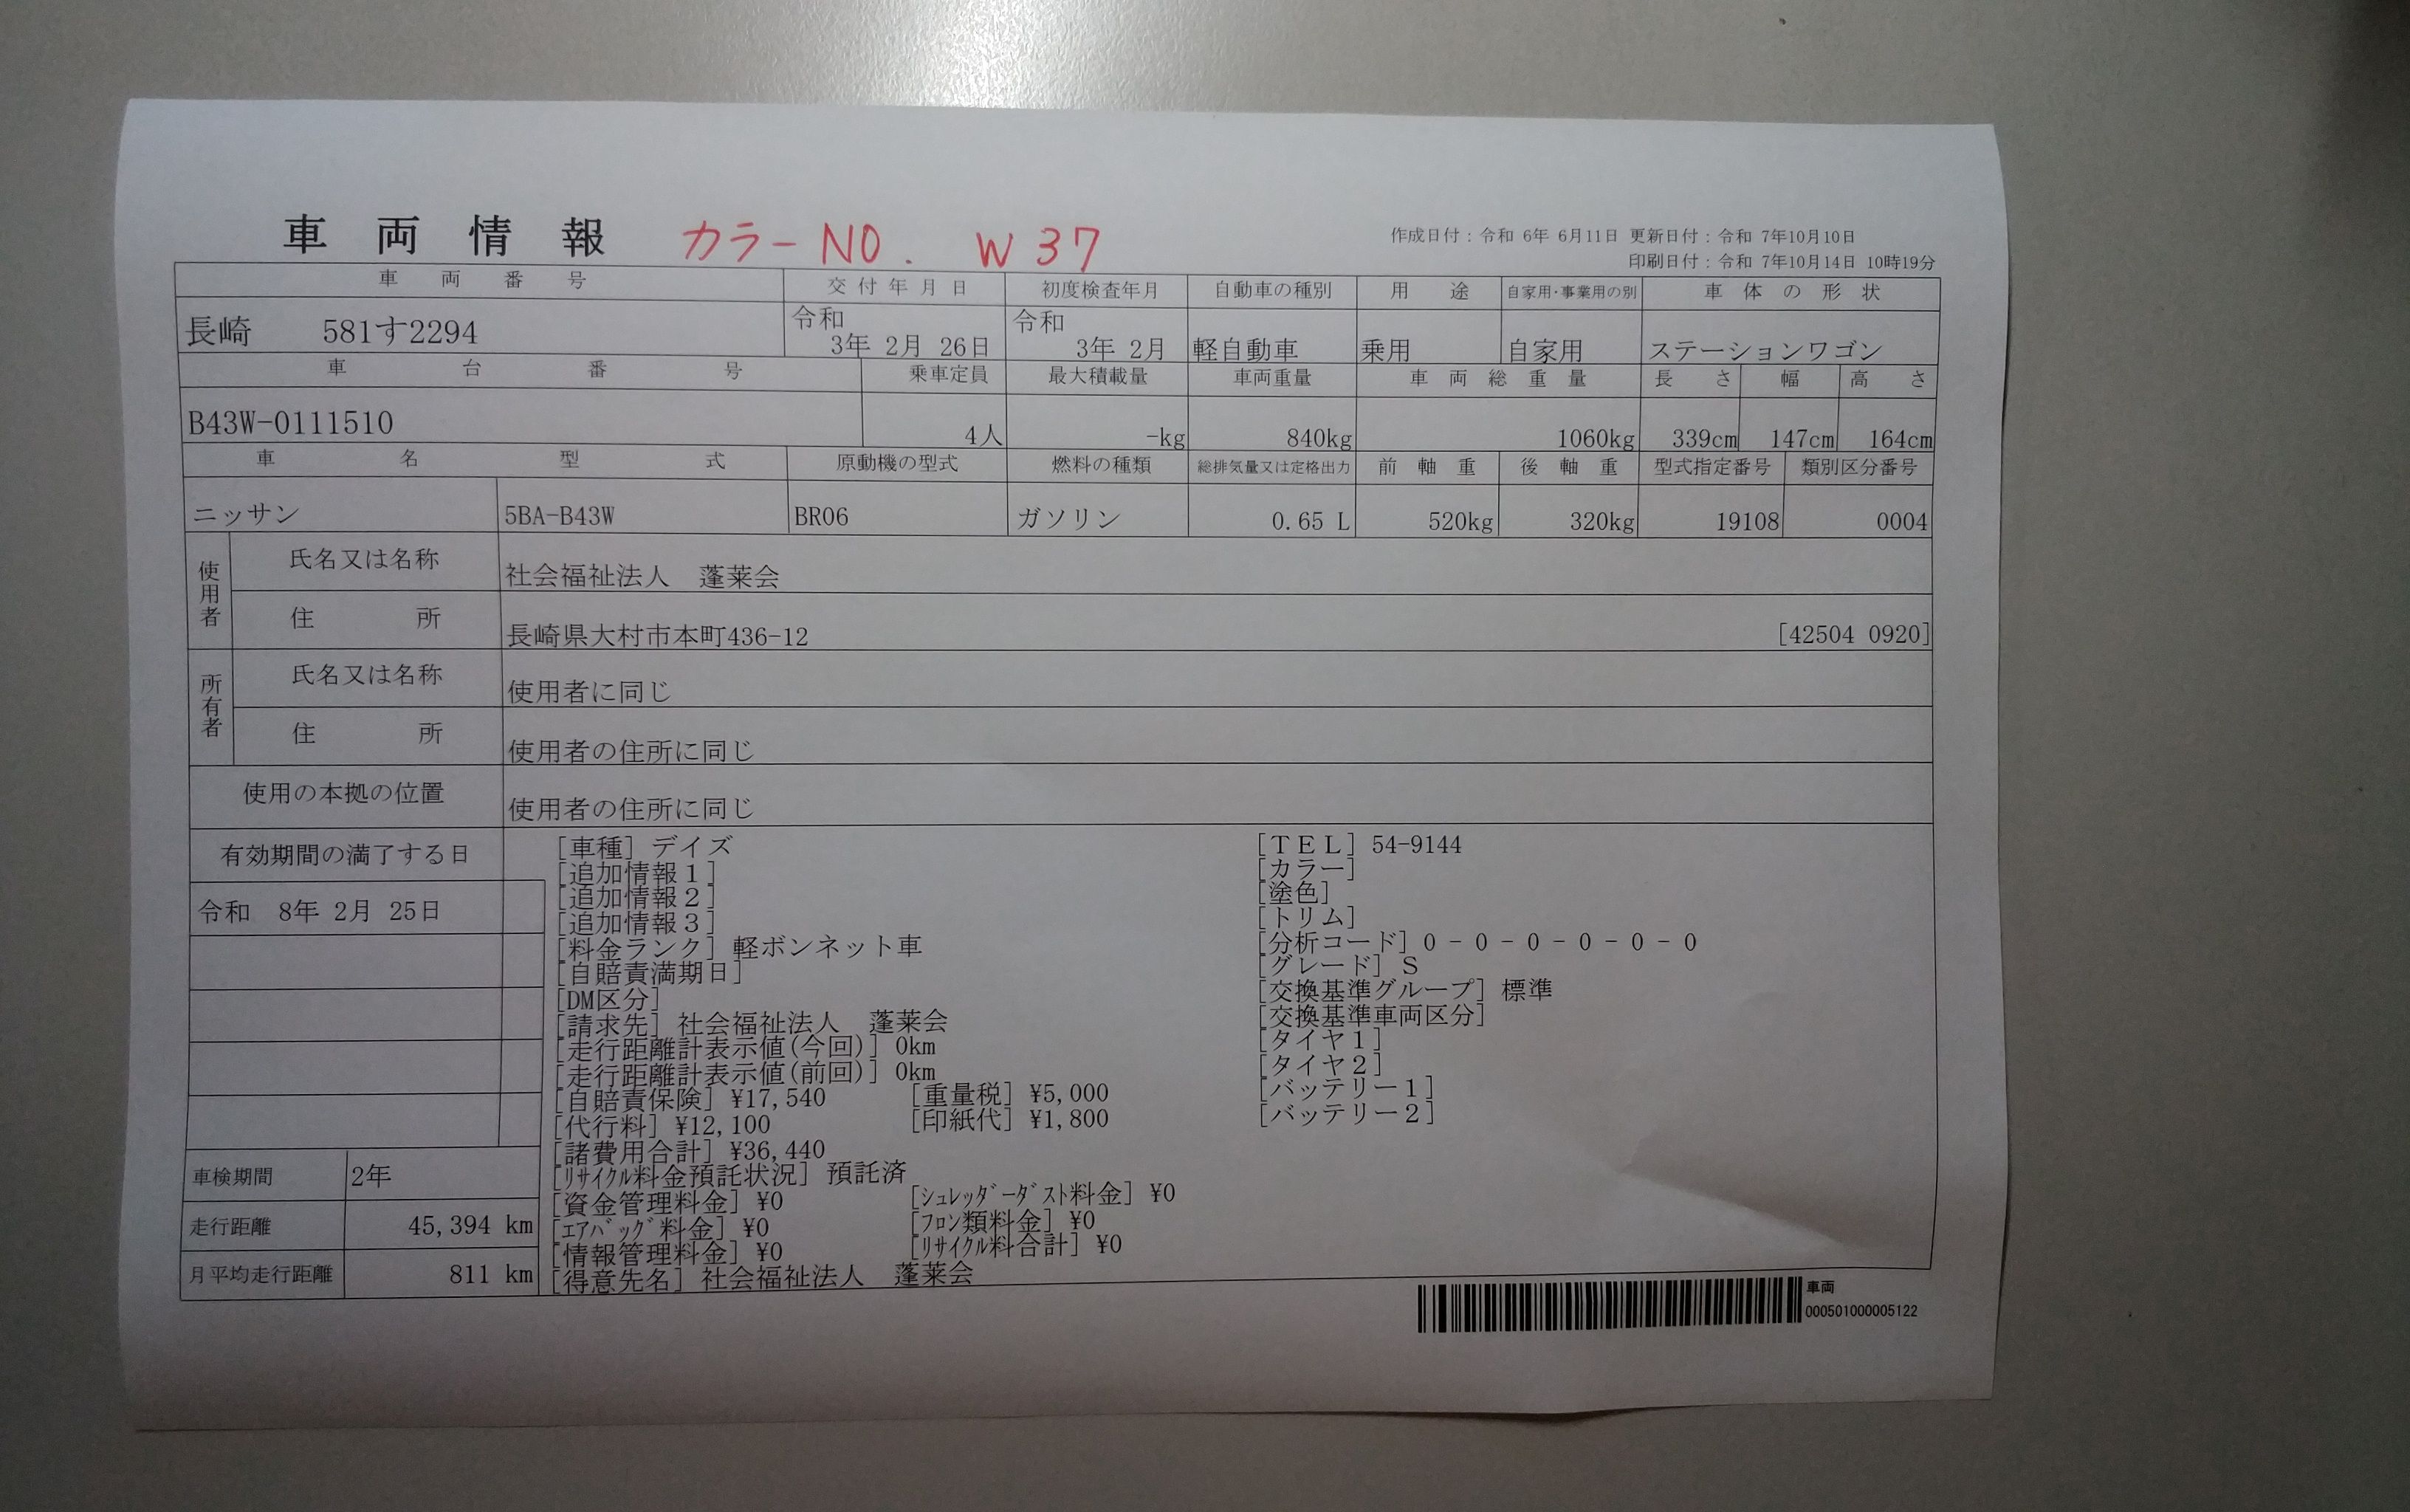 車両情報 カラーNO. W37
作成日付：令和 6年 6月11日 更新日付：令和 7年10月10日
印刷日付：令和 7年10月14日 10時19分
車両番号 交付年月日 初度検査年月 自動車の種別 用途 自家用・事業用の別 車体の形状
長崎 581す2294 令和 3年 2月 26日 令和 3年 2月 軽自動車 乗用 自家用 ステーションワゴン
車台番号 乗車定員 最大積載量 車両重量 車両総重量 長さ 幅 高さ
B43W-0111510 4人 -kg 840kg 1060kg 339cm 147cm 164cm
車名 型式 原動機の型式 燃料の種類 総排気量又は定格出力 前軸重 後軸重 型式指定番号 類別区分番号
ニッサン 5BA-B43W BR06 ガソリン 0.65 L 520kg 320kg 19108 0004
使用者 氏名又は名称 社会福祉法人 蓬莱会
住所 長崎県大村市本町436-12 [42504 0920]
所有者 氏名又は名称 使用者に同じ
住所 使用者の住所に同じ
使用の本拠の位置 使用者の住所に同じ
有効期間の満了する日
令和 8年 2月 25日
車検期間 2年
走行距離 45,394 km
月平均走行距離 811 km
[車種] デイズ
[追加情報１]
[追加情報２]
[追加情報３]
[料金ランク] 軽ボンネット車
[自賠責満期日]
[DM区分]
[請求先] 社会福祉法人 蓬莱会
[走行距離計表示値(今回)] 0km
[走行距離計表示値(前回)] 0km
[自賠責保険] ¥17,540 [重量税] ¥5,000
[代行料] ¥12,100 [印紙代] ¥1,800
[諸費用合計] ¥36,440
[ﾘｻｲｸﾙ料金預託状況] 預託済
[資金管理料金] ¥0 [ｼｭﾚｯﾀﾞｰﾀﾞｽﾄ料金] ¥0
[ｴｱﾊﾞｯｸﾞ料金] ¥0 [ﾌﾛﾝ類料金] ¥0
[情報管理料金] ¥0 [ﾘｻｲｸﾙ料合計] ¥0
[得意先名] 社会福祉法人 蓬莱会
[ＴＥＬ] 54-9144
[カラー]
[塗色]
[トリム]
[分析コード] 0 - 0 - 0 - 0 - 0 - 0
[グレード] Ｓ
[交換基準グループ] 標準
[交換基準車両区分]
[タイヤ１]
[タイヤ２]
[バッテリー１]
[バッテリー２]
車両
000501000005122